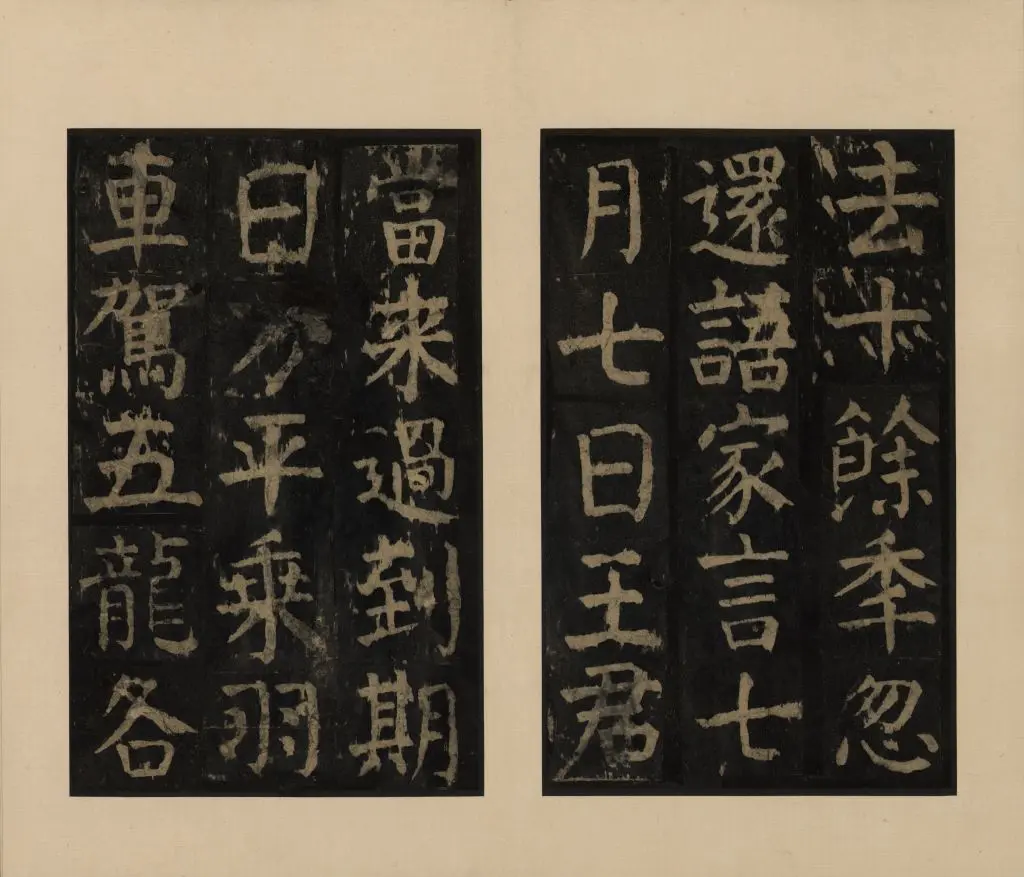 法十餘秊忽
還語家言七
月七日王君
當來過到期
日方平乘羽
車駕五龍各